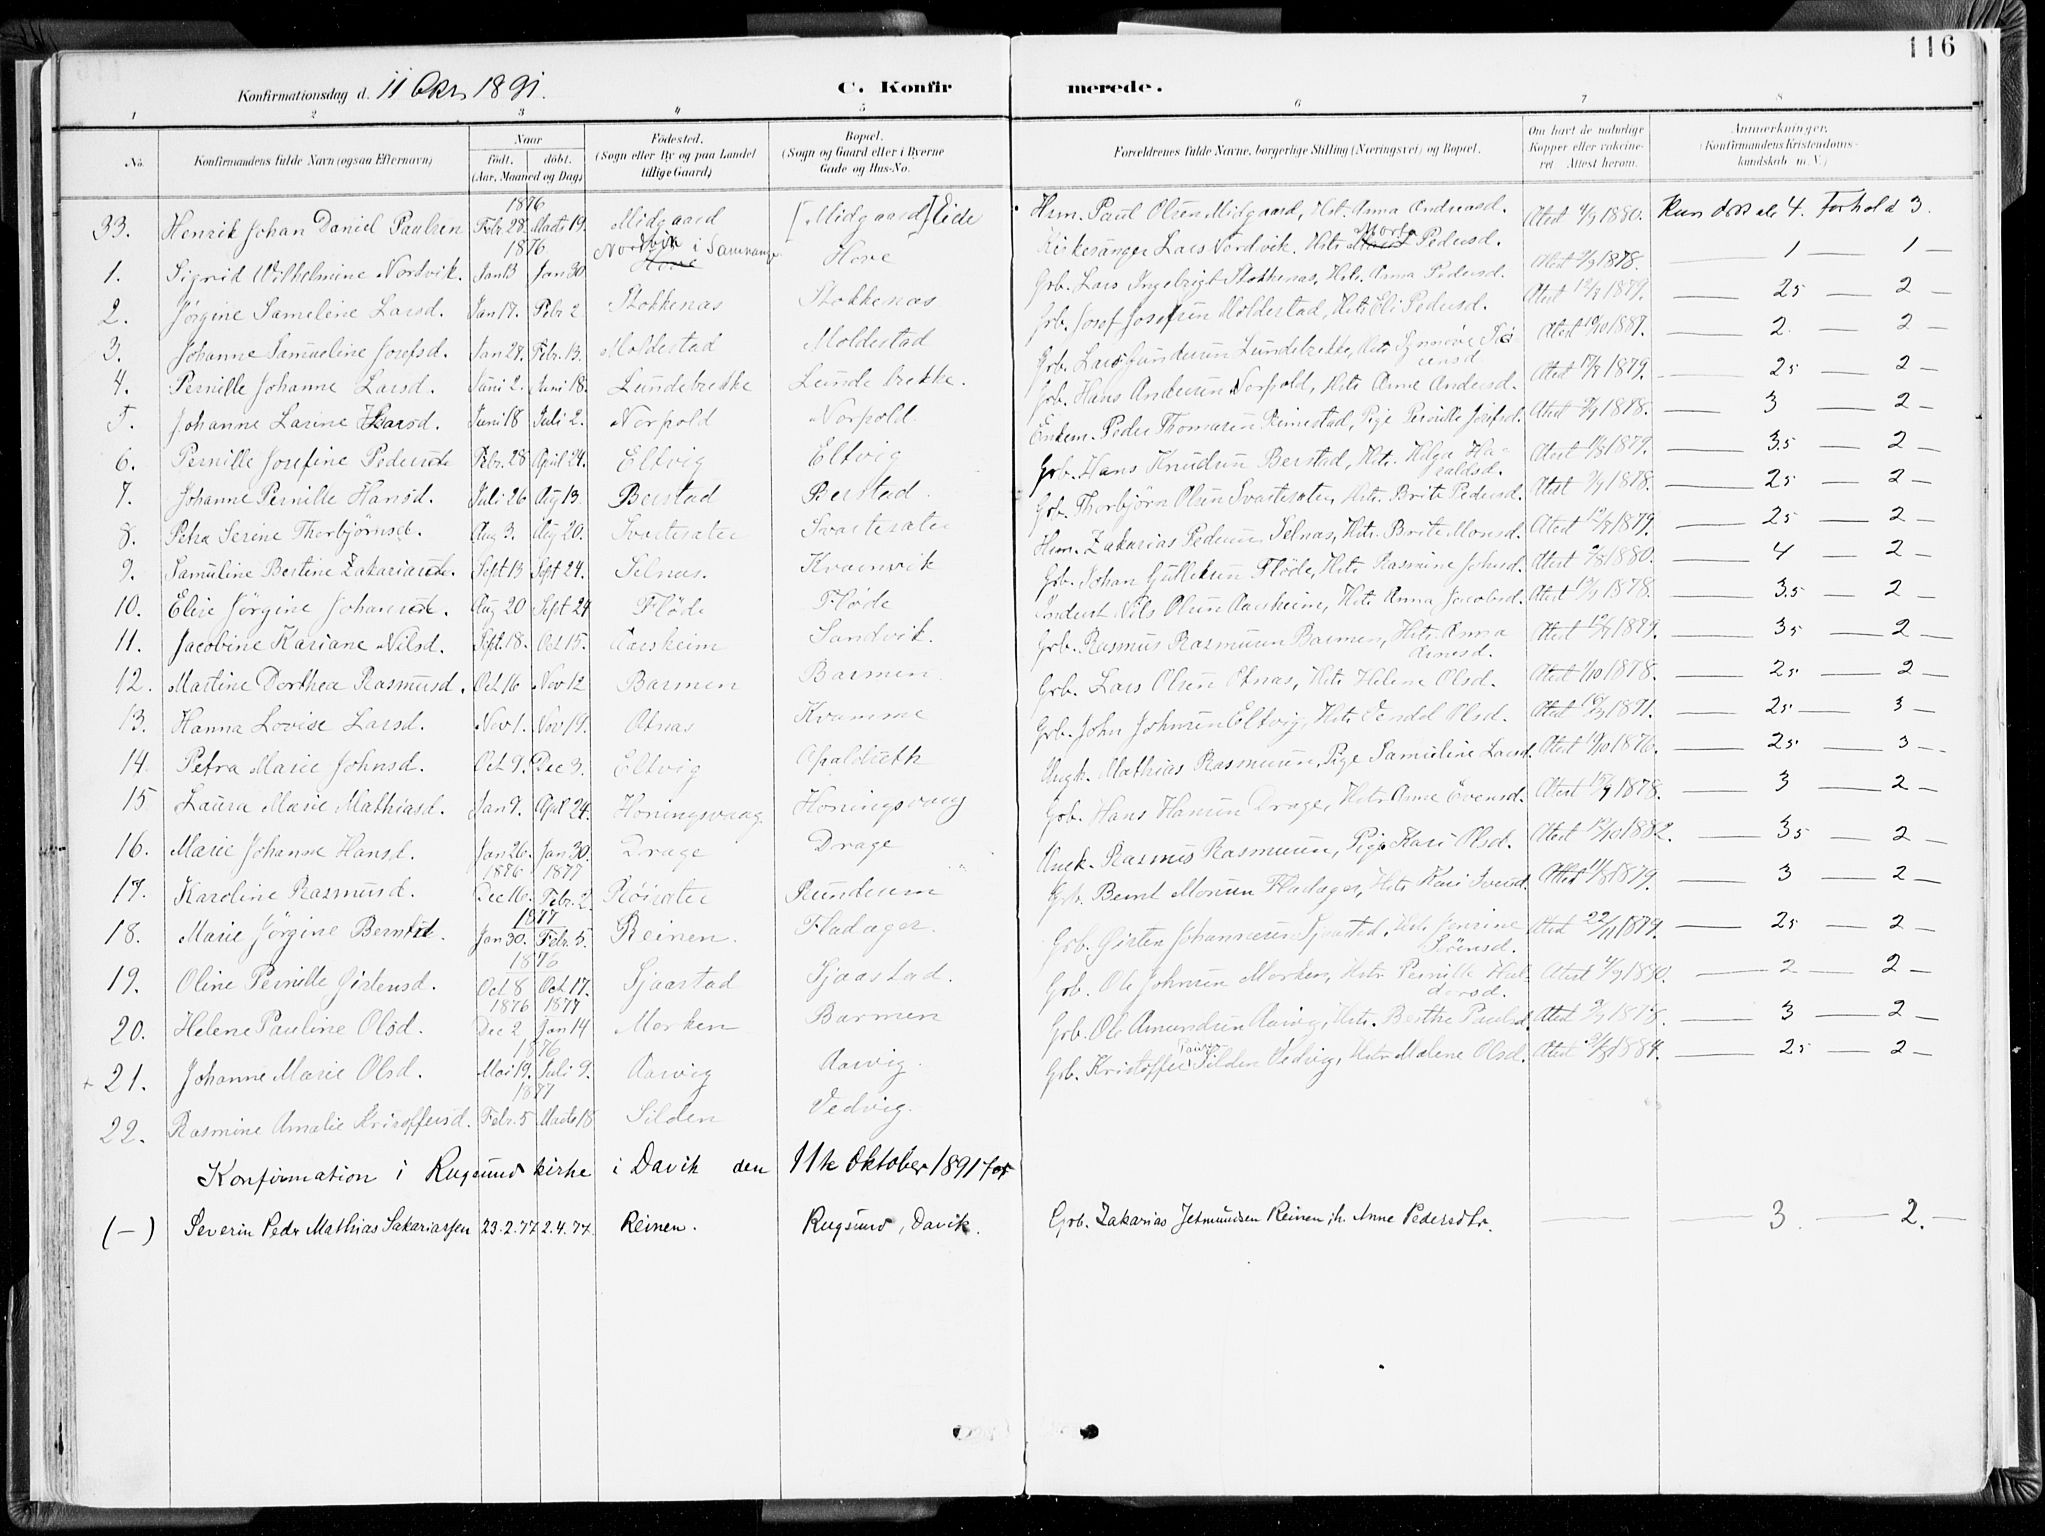 116
Konfirmationsdag d. 11 Okt. 1891. C. Konfirmerede.
1 2 3 4 5 6 7 8
No. Konfirmandens fulde Navn (ogsaa Efternavn) Naar født. døbt. (Aar, Maaned og Dag) Fødested. (Sogn eller By og paa Landet tillige Gaard) Bopæl. (Sogn og Gaard eller i Byerne Gade og Hus-No. Forældrenes fulde Navne, borgerlige Stilling (Næringsvei) og Bopæl. Om havt de naturlige Kopper eller vakcineret Attest herom. Anmærkninger. (Konfirmandens Kristendomskundskab m. V.)
1876
33. Henrik Johan Daniel Paulsen Febr. 28. Marts 19. Midgaard [Midgaard] Eide Hsm. Paul Olsen Midgaard, Hst. Anna Andreasd. Atest 4/9 1880. Kundsk. 4. Forhold 3.
1876
1. Sigrid Wilhelmine Nordvik. Jan 13 Jan 30 Nordvik i Samnanger Hove Hove Kirkesanger Lars Nordvik. Hstr Marta Pedersd. Atest 9/9 1878. 1 — 1 —
2. Jørgine Sameline Larsd. Jan 17. Febr 2 Stokkenas Stokkenas Grb. Lars Ingebrigt Stokkenas, Hst. Anna Pedersd. Atest 12/9 1879. 25 — 2 —
3. Johanne Samueline Josefsd. Jan 28. Febr. 13. Moldestad Moldestad Grb. Josef Josefsen Moldestad, Hstr Eli Pedersd. Atest 19/10 1887. 2. — 2 —
4. Pernille Johanne Larsd. Juni 2. Juni 18. Lundebrekke Lundebrekke. Grb. Lars Gundersen Lundebrekke, Hstr Synnøve Atest 17/9 1879. 25 — 2 —
5. Johanne Larine Hansd. Juni 18 Juli 2. Norpold Norpold. Grb. Hans Andersen Norpold, Hstr Anne Andersd. Atest 9/9 1878. 3 — 2 —
6. Pernille Josefine Pedersdtr Febr. 28 April 24. Eltvig Eltvig Enkem. Peder Thomassen Rimestad, Pige Pernille Josefsd. Atest 14/8 1879. 35 — 2 —
7. Johanne Pernille Hansd. Juli 26 Aug 13. Berstad Berstad. Grb. Hans Knudsen Berstad, Hstr. Helga Haraldsd. Atest 9/9 1878. 25 — 2 —
8. Petra Serine Thorbjørnsd. Aug 3. Aug 20. Svartesæter Svartesæter Grb. Thorbjørn Olsen Svartesæter, Hstr. Brite Pedersd. Atest 12/9 1879. 25 — 2 —
9. Samuline Bertine Zakariasdtr. Sept 13 Sept 24. Selnas. Kvamvik Hsm. Zakarias Pedersen Selnas, Hstr. Brite Monsd. Atest 9/8 1880. 4 — 2 —
10. Elise Jørgine Johansdtr. Aug 20 Sept 24 Fløde Fløde Grb. Johan Gulleksen Fløde, Hstr Rasmine Johnsd. Atest 12/9 1878. 35 — 2 —
11. Jacobine Kariane Nilsd. Sept. 18. Oct 15. Aarsheim Sandvik. Inderst Nils Olsen Aarsheim, Hstr Anna Jacobsd. Atest 12/9 1879. 35 — 2 —
12. Martine Dorthea Rasmusd. Oct 16 Nov 12 Barmen Barmen. Grb. Rasmus Rasmussen Barmen, Hstr. Anna Arnesd. Atest 1/10 1878. 25 — 2 —
13. Hanna Lovise Larsd. Nov 1. Nov 19. Otnas Kvamme Grb. Lars Olsen Otnas, Hstr Helene Olsd. Atest 1891. 25 — 3 —
14. Petra Marie Johnsd. Oct 9. Dec 3. Eltvig Apalsæth Grb. John Johnsen Eltvig, Hstr Vendel Olsd. Atest 19/10 1876. 25 — 3 —
15 Laura Marie Mathiasd. Jan 9. April 24. Honingsvaag Honingsvaag Ungk. Mathias Rasmussen, Pige Samuline Larsd. Atest 1878. 3 — 2 —
16. Marie Johanne Hansd. Jan 26. Jan 30. Drage Drage Grb. Hans Hansen Drage, Hstr Anne Evensd. Atest 12/10 1882. 35 — 2 —
1876 1877
17. Karoline Rasmusd. Dec 16. Febr. 2 Røisæter Rundereim Ungk. Rasmus Rasmussen, Pige Kari Olsd. Atest 14/8 1879. 3 — 2 —
1877
18. Marie Jørgine Berntsd. Jan 30. Febr. 5. Reinen. Fladager. Grb. Bernt Monsen Fladager, Hstr Kari Iversd. Atest 22/11 1879. 25 — 2 —
1876
19. Oline Pernille Gistensd. Oct 8 Oct 17. Sjaastad Sjaastad. Grb. Gisten Johannesen Sjaastad, Hst. Jensine Sørensd. Atest 4/9 1880. 2 — 2 —
1876 1877
20. Helene Pauline Olsd. Dec 2 Jan 14 Morken Barmen Grb. Ole Johnsen Morken, Hstr. Pernille Haldorsd. Atest 9/9 1878. 3 — 2 —
1876
+ 21. Johanne Marie Olsd. Mai 19. Juli 9. Aarvig Aarvig. Grb. Ole Amundsen Aarvig, Hstr. Berthe Paulsd. Atest 9/8 1884. 25 — 2 —
1877
22. Rasmine Amalie Kristoffersd. Febr. 5 Marts 18 Silden Vedvig. Grb. Kristoffer Silden Vedvig, Hstr Malene Olsd.
Konfirmation i Rugsund kirke i Davik den 11te Oktober 1891 for
(—) Severin Pedr Mathias Sakariassen 23.2.77 2.4.77. Reinen. Rugsund, Davik. Grb. Zakarias Jetmundsen Reinen, h. Anne Pedersdtr. — 3. — 2. —